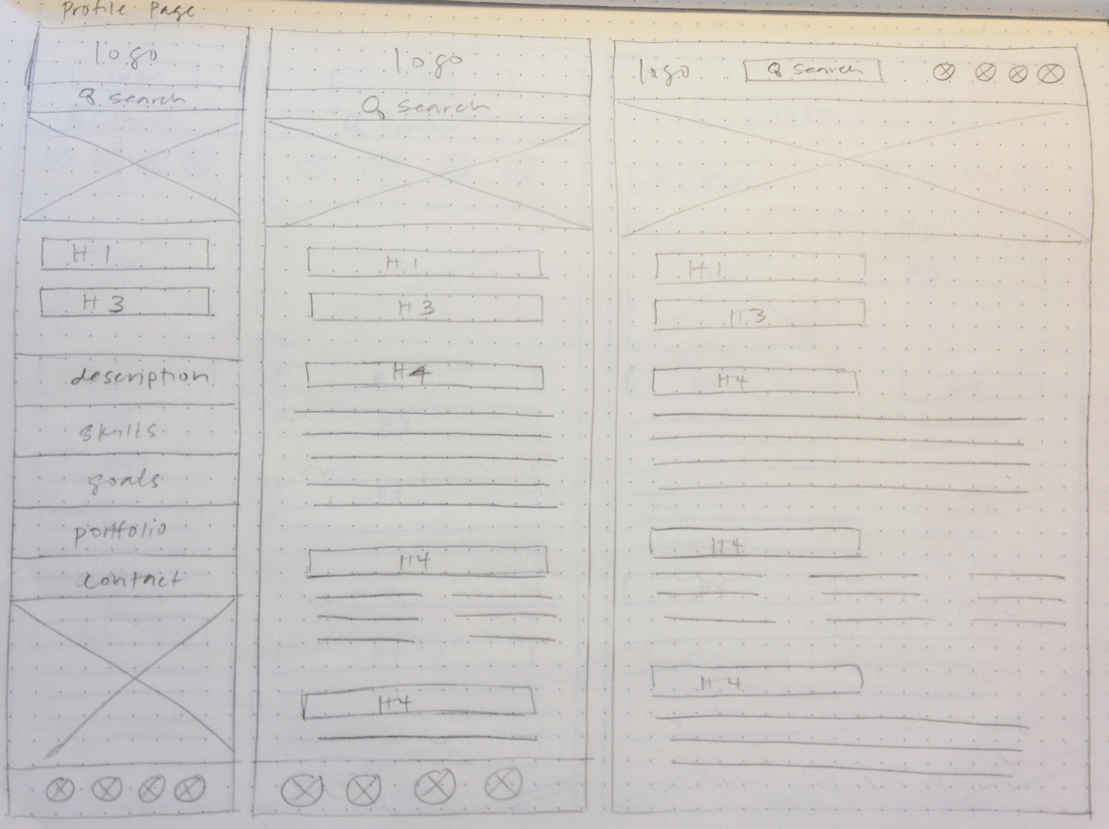 Profile Page
logo
search
H1
H3
description
skills
goals
portfolio
contact
logo
search
H1
H3
H4
H4
H4
logo search
H1
H3
H4
H4
H4